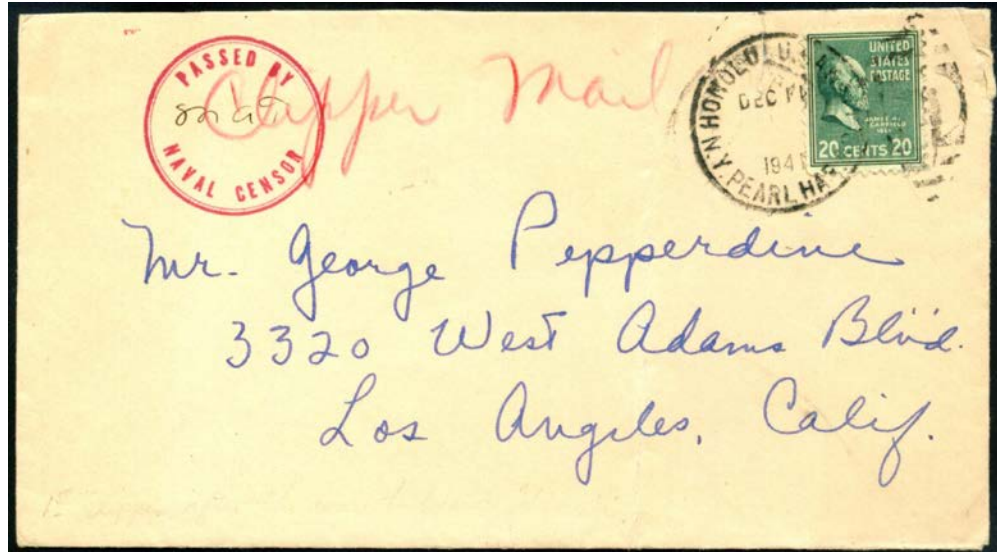 PASSED BY
NAVAL CENSOR
Clipper Mail
HONOLULU
DEC
1941
N.Y. PEARL HAR
UNITED
STATES
POSTAGE
JAMES A.
GARFIELD
20 CENTS 20
Mr. George Pepperdine
3320 West Adams Blvd.
Los Angeles, Calif.